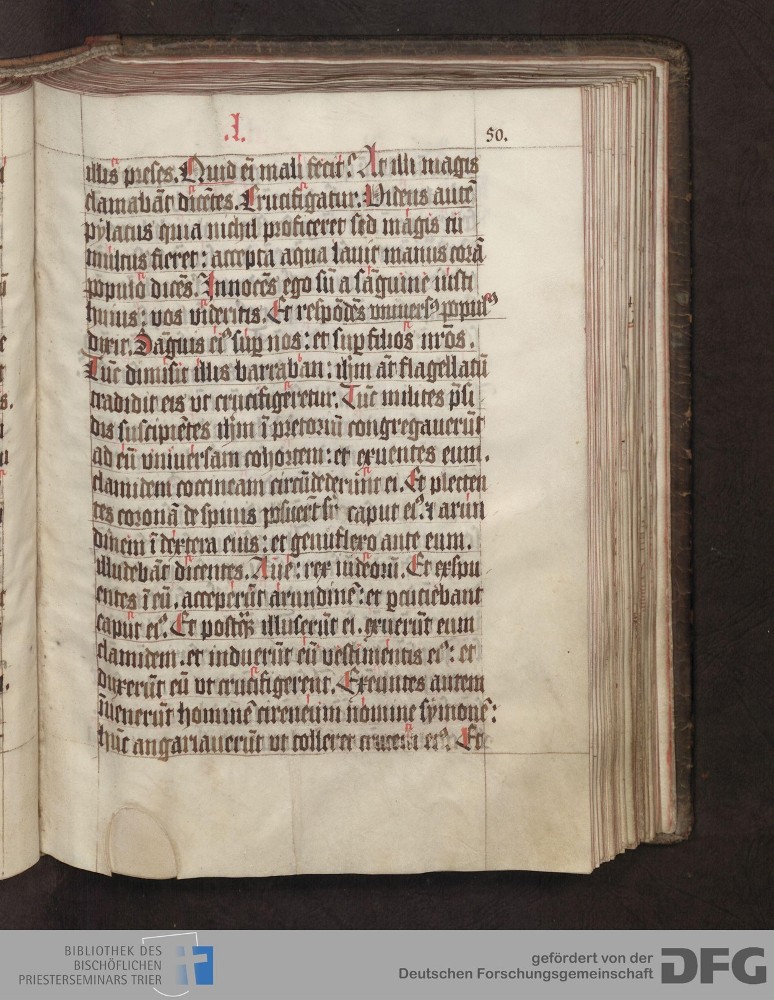 .I.
50.
illis preses. Quid eī mali fecit? At illi magis
clamabāt dicētes. Crucifigatur. Videns autē
pylatus quia nichil proficeret sed magis tū
multus fieret: accepta aqua lauit manus corā
populo dicēs. Innocēs ego sū a sāguine iusti
huius: vos videritis. Et respōdēs vniuersꝰ popul᷒ꝰ
dixit. Sāguis eiꝰ suꝑ nos: et suꝑ filios nr̄os.
Tūc dimisit illis barraban: ihm̄ aūt flagellatū
tradidit eis vt crucifigeretur. Tūc milites p̄si
dis suscipiētes ihm̄ ī pretoriū congregauerūt
ad eū vniuersam cohortem: et exuentes eum.
clamidem coccineam circūdederūt ei. Et plecten
tes coronā de spinis posuer̄t sr̄ caput eiꝰ. ⁊ arun
dinem ī dextera eius: et genuflexo ante eum.
illudebāt dicentes. Aue: rex iudeorū. Et exspu
entes ī eū. acceperūt arundinē: et ꝑcutiebant
caput eiꝰ. Et postqꝫ illuserūt ei. exuerūt eum
clamidem. et induerūt eū vestimentis eiꝰ: et
duxerūt eū vt crucifigerent. Exeuntes autem
īuenerūt hominē cireneum nomine symonē:
hūc angariauerūt vt tolleret crucem eiꝰ. Et
BIBLIOTHEK DES
BISCHÖFLICHEN
PRIESTERSEMINARS TRIER
gefördert von der
Deutschen Forschungsgemeinschaft
DFG